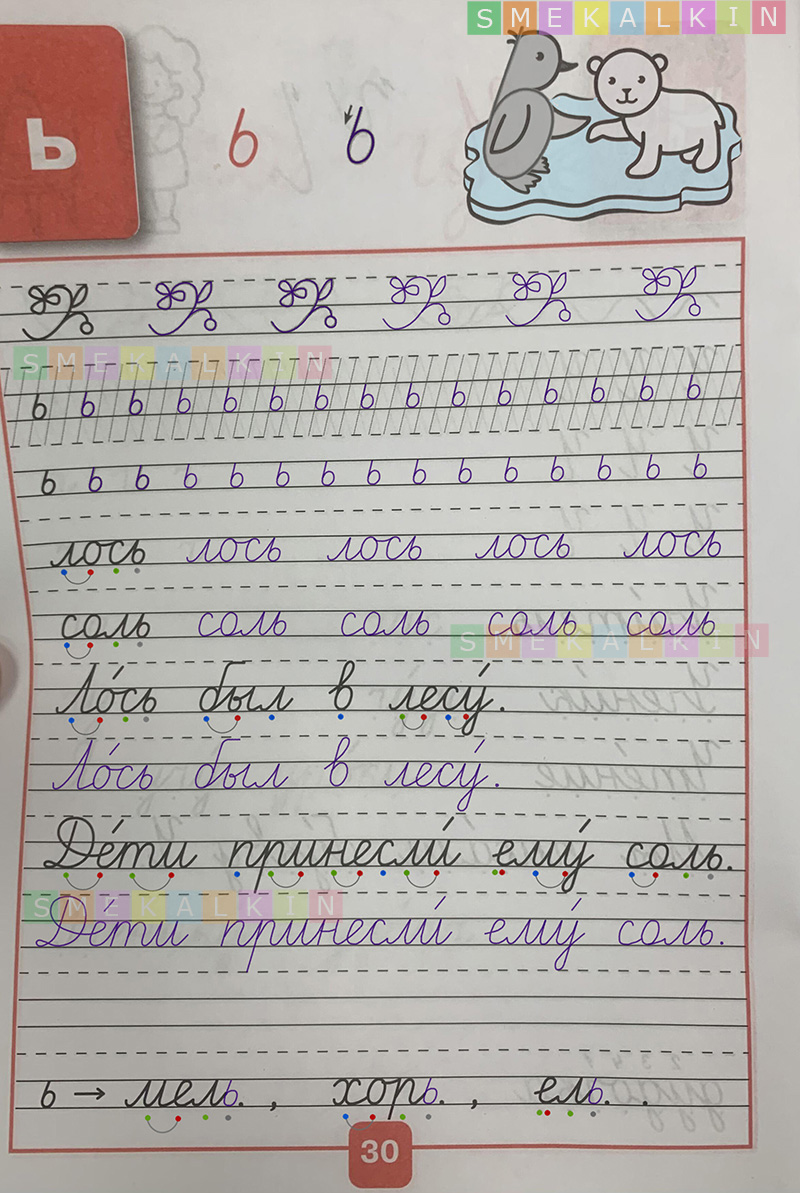 SMEKALKIN
Ь
ь ь
SMEKALKIN
ь ь ь ь ь ь ь ь ь ь ь ь ь ь ь
ь ь ь ь ь ь ь ь ь ь ь ь ь ь ь
лось лось лось лось лось
соль соль соль соль соль
SMEKALKIN
Ло́сь был в лесу́.
Ло́сь был в лесу́.
Де́ти принесли́ ему́ соль.
SMEKALKIN
Де́ти принесли́ ему́ соль.
ь → мель. , хорь. , ель. .
30